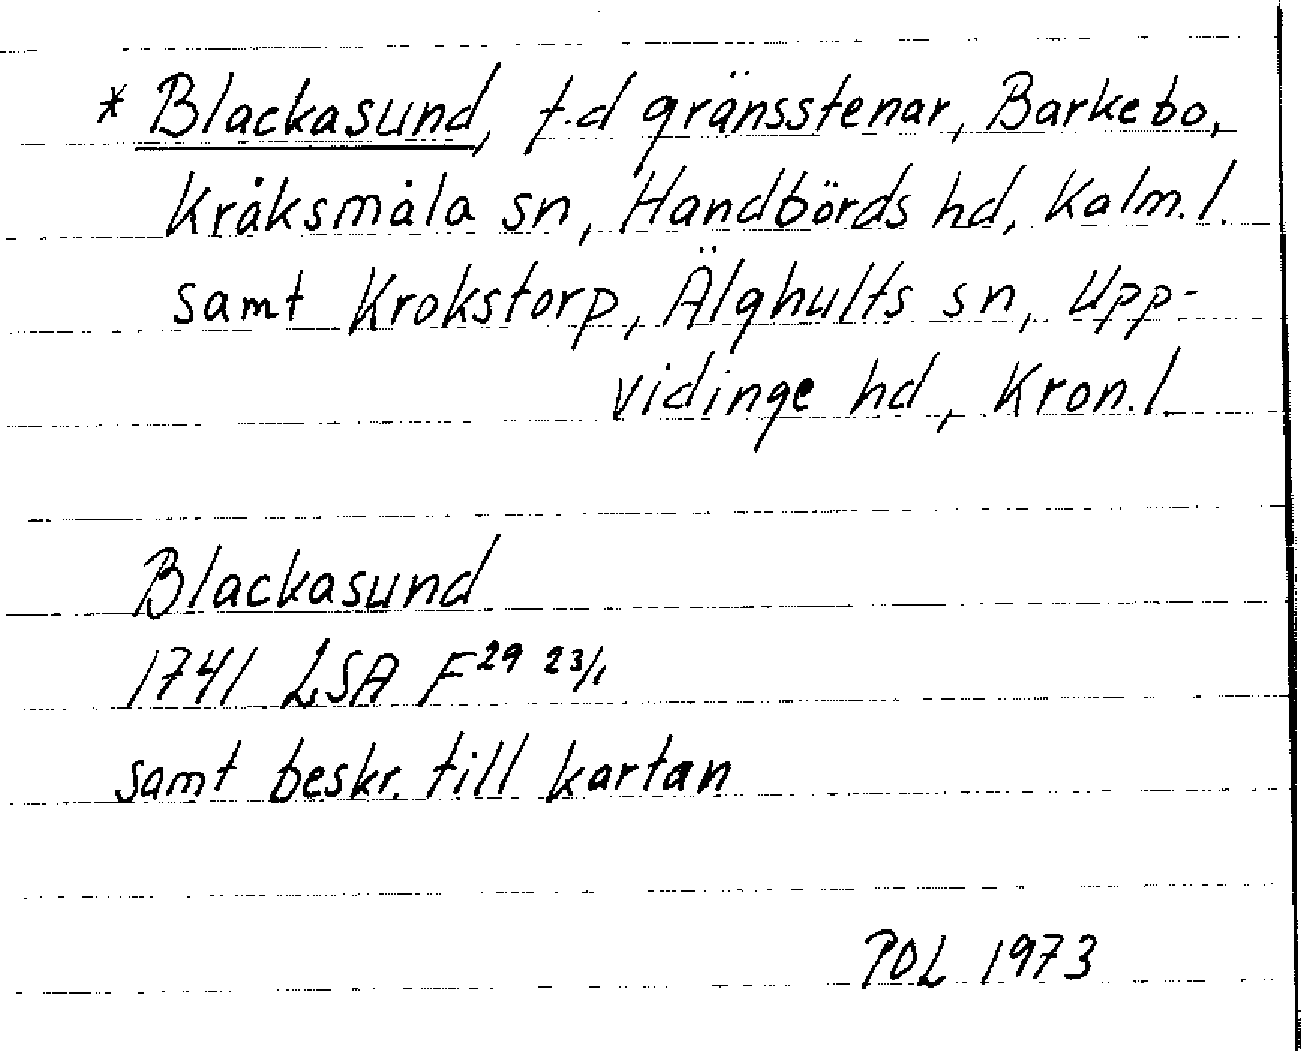 * Blackasund, f.d gränsstenar, Barkebo,
Kråksmåla sn, Handbörds hd, Kalm.l.
samt Krokstorp, Älghults sn, Upp-
vidinge hd, Kron.l.
Blackasund
1741 LSA F²⁹ ²³/₁
samt beskr. till kartan
POL 1973